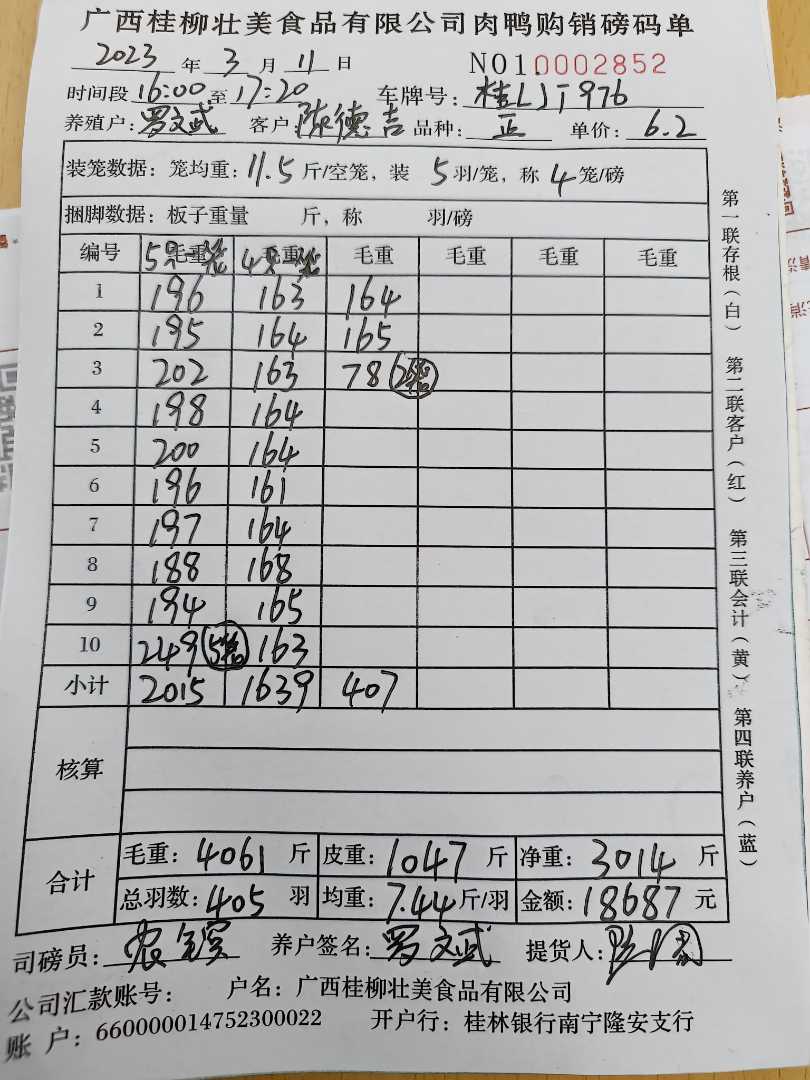 广西桂柳壮美食品有限公司肉鸭购销磅码单
2023 年 3 月 11 日 NO1.0002852
时间段 16:00 至 17:20 车牌号: 桂LJT976
养殖户: 罗文武 客户: 陈德吉 品种: 正 单价: 6.2
装笼数据: 笼均重: 11.5 斤/空笼, 装 5 羽/笼, 称 4 笼/磅
捆脚数据: 板子重量 斤, 称 羽/磅
编号 5只笼 毛重 4只笼 毛重 毛重 毛重 毛重 毛重
1 196 163 164
2 195 164 165
3 202 163 78
4 198 164
5 200 164
6 196 161
7 197 164
8 188 168
9 194 165
10 249 163
小计 2015 1639 407
核算
合计
毛重: 4061 斤 皮重: 1047 斤 净重: 3014 斤
总羽数: 405 羽 均重: 7.44 斤/羽 金额: 18687 元
司磅员: 养户签名: 罗文武 提货人:
公司汇款账号: 户名: 广西桂柳壮美食品有限公司
账 户: 660000014752300022 开户行: 桂林银行南宁隆安支行
第一联存根(白)
第二联客户(红)
第三联会计(黄)
第四联养户(蓝)